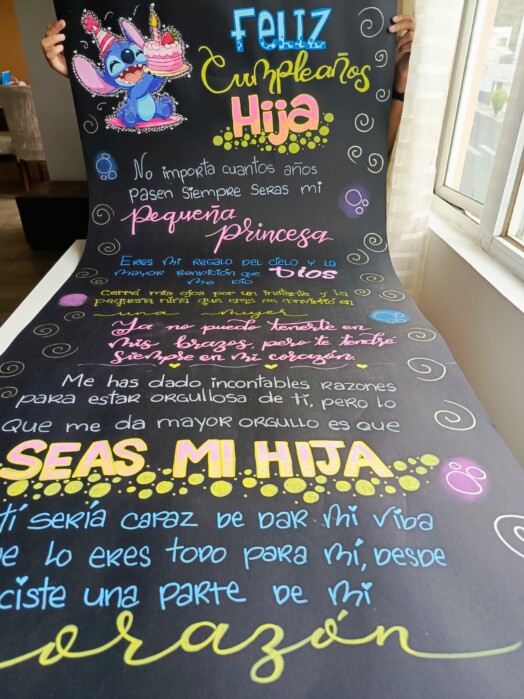 FELIZ
Cumpleaños
Hija
No importa cuantos años
pasen siempre seras mi
pequeña
princesa
Eres mi regalo del cielo y la
mayor bendición que DIOS
me dio
Cerré mis ojos por un instante y la
pequeña niña que eras se convirtió en
una mujer
Ya no puedo tenerte en
mis brazos, pero te tendré
siempre en mi corazón.
Me has dado incontables razones
para estar orgullosa de ti, pero lo
que me da mayor orgullo es que
SEAS MI HIJA
tí sería capaz de dar mi vida
e lo eres todo para mí, desde
ciste una parte de mi
corazón